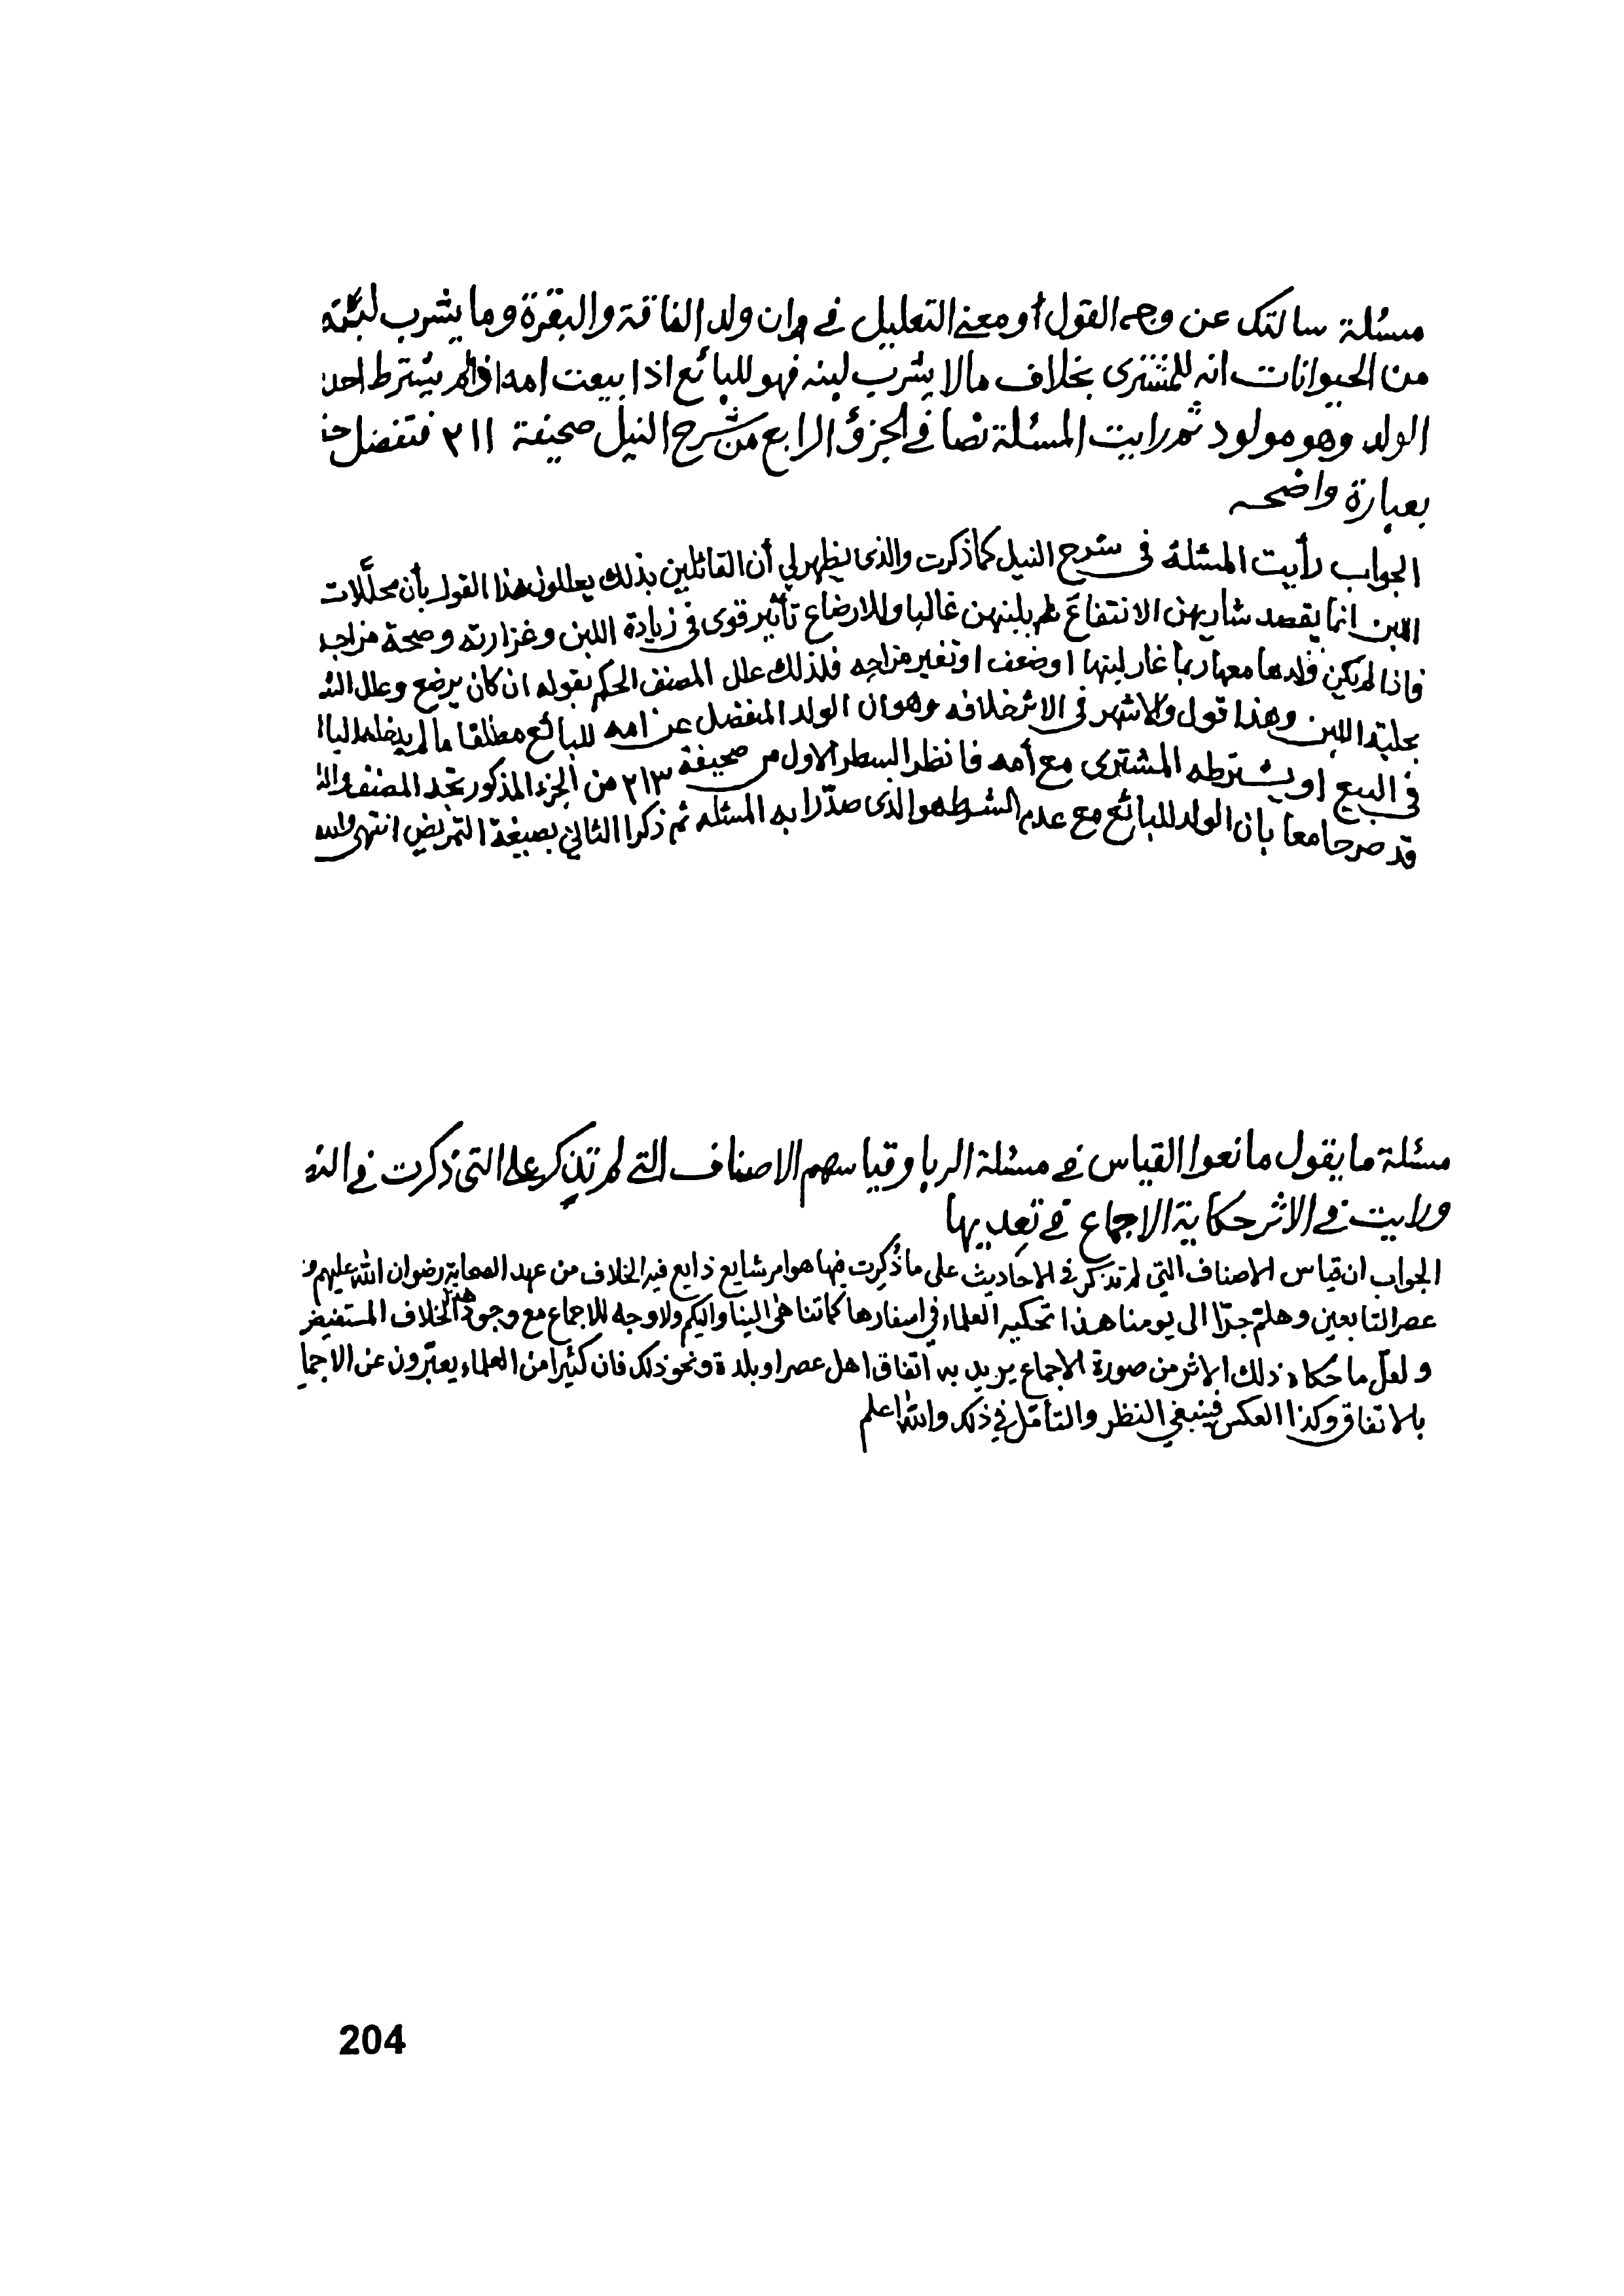 مسئلة سالتك عن وجه القول او معنى التعليل في وان ولد الناقة والبقرة وما يشرب لبنه
من الحيوانات انه للمشترى بخلاف مالا يشرب لبنه فهو للبائع اذا بيعت امه اذا لم يشترط احد
الولد وهو مولود ثم رايت المسئلة نصا في الجزؤ الرابع من شرح النيل صحيفة ٢١١ فتفضل
بعبارة واضحه
الجواب رأيت المسئلة في شرح النيل كما ذكرت والذى يظهر لي أن القائلين بذلك يعللون هذا القول بأن محللات
اللبن انما يقصد شاريهن الانتفاع بلبنهن غالبا وللارضاع تأثير قوى في زيادة اللبن وغزارته وصحة مزاجه
فاذا لم يكن ولدها معها ربما غار لبنها او ضعف او تغير مزاجه فلذلك علل المصنف الحكم بقوله ان كان يرضع وعلل
بحلية اللبن وهذا قول والاشهر في الاثر خلافه وهو ان الولد المنفصل عن امه للبائع مطلقا ما لم يدخله
في البيع او يشترطه المشترى مع أمه فانظر السطر الاول من صحيفة ٢١٣ من الجزء المذكور تجد المصنف
قد صرحا معا بان الولد للبائع مع عدم الشرط هو الذى صدّرا به المسئله ثم ذكرا الثاني بصيغة التمريض انتهى والله
مسئلة ما يقول مانعوا القياس في مسئلة الربا وقياسهم الاصناف التي لم تذكر على التى ذكرت في
ورايت في الاثر حكاية الاجماع في تعديها
الجواب ان قياس الاصناف التي لم تذكر في الاحاديث على ما ذُكِرت فيها هو امر شايع ذايع فيه الخلاف من عهد الصحابة رضوان الله عليهم و
عصر التابعين وهلم جرّا الى يومنا هذا تحكيه العلماء في اسفارها كما تناهى الينا واليكم ولا وجه للاجماع مع وجود هذا الخلاف المستفيض
ولعلّ ما حكاه ذلك الاثر من صورة الاجماع يريد به اتفاق اهل عصر او بلدة ونحو ذلك فان كثيرا من العلماء يعبّرون عن الاجما
بالاتفاق وكذا العكس فينبغي النظر والتأمّل في ذلك والله اعلم
204